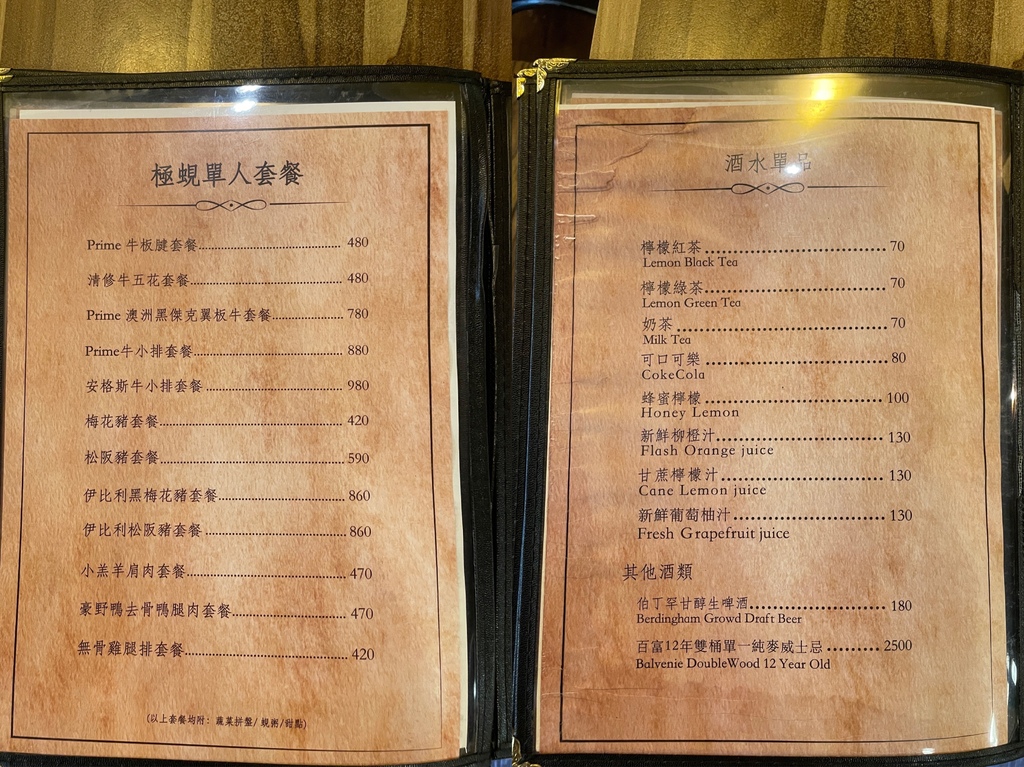 極蜆單人套餐
Prime 牛板腱套餐 480
清修牛五花套餐 480
Prime 澳洲黑傑克翼板牛套餐 780
Prime牛小排套餐 880
安格斯牛小排套餐 980
梅花豬套餐 420
松阪豬套餐 590
伊比利黑梅花豬套餐 860
伊比利松阪豬套餐 860
小羔羊肩肉套餐 470
豪野鴨去骨鴨腿肉套餐 470
無骨雞腿排套餐 420
(以上套餐均附: 蔬菜拼盤/ 蜆粥/甜點)
酒水單品
檸檬紅茶 70
Lemon Black Tea
檸檬綠茶 70
Lemon Green Tea
奶茶 70
Milk Tea
可口可樂 80
CokeCola
蜂蜜檸檬 100
Honey Lemon
新鮮柳橙汁 130
Flash Orange juice
甘蔗檸檬汁 130
Cane Lemon juice
新鮮葡萄柚汁 130
Fresh Grapefruit juice
其他酒類
伯丁罕甘醇生啤酒 180
Berdingham Growd Draft Beer
百富12年雙桶單一純麥威士忌 2500
Balvenie DoubleWood 12 Year Old